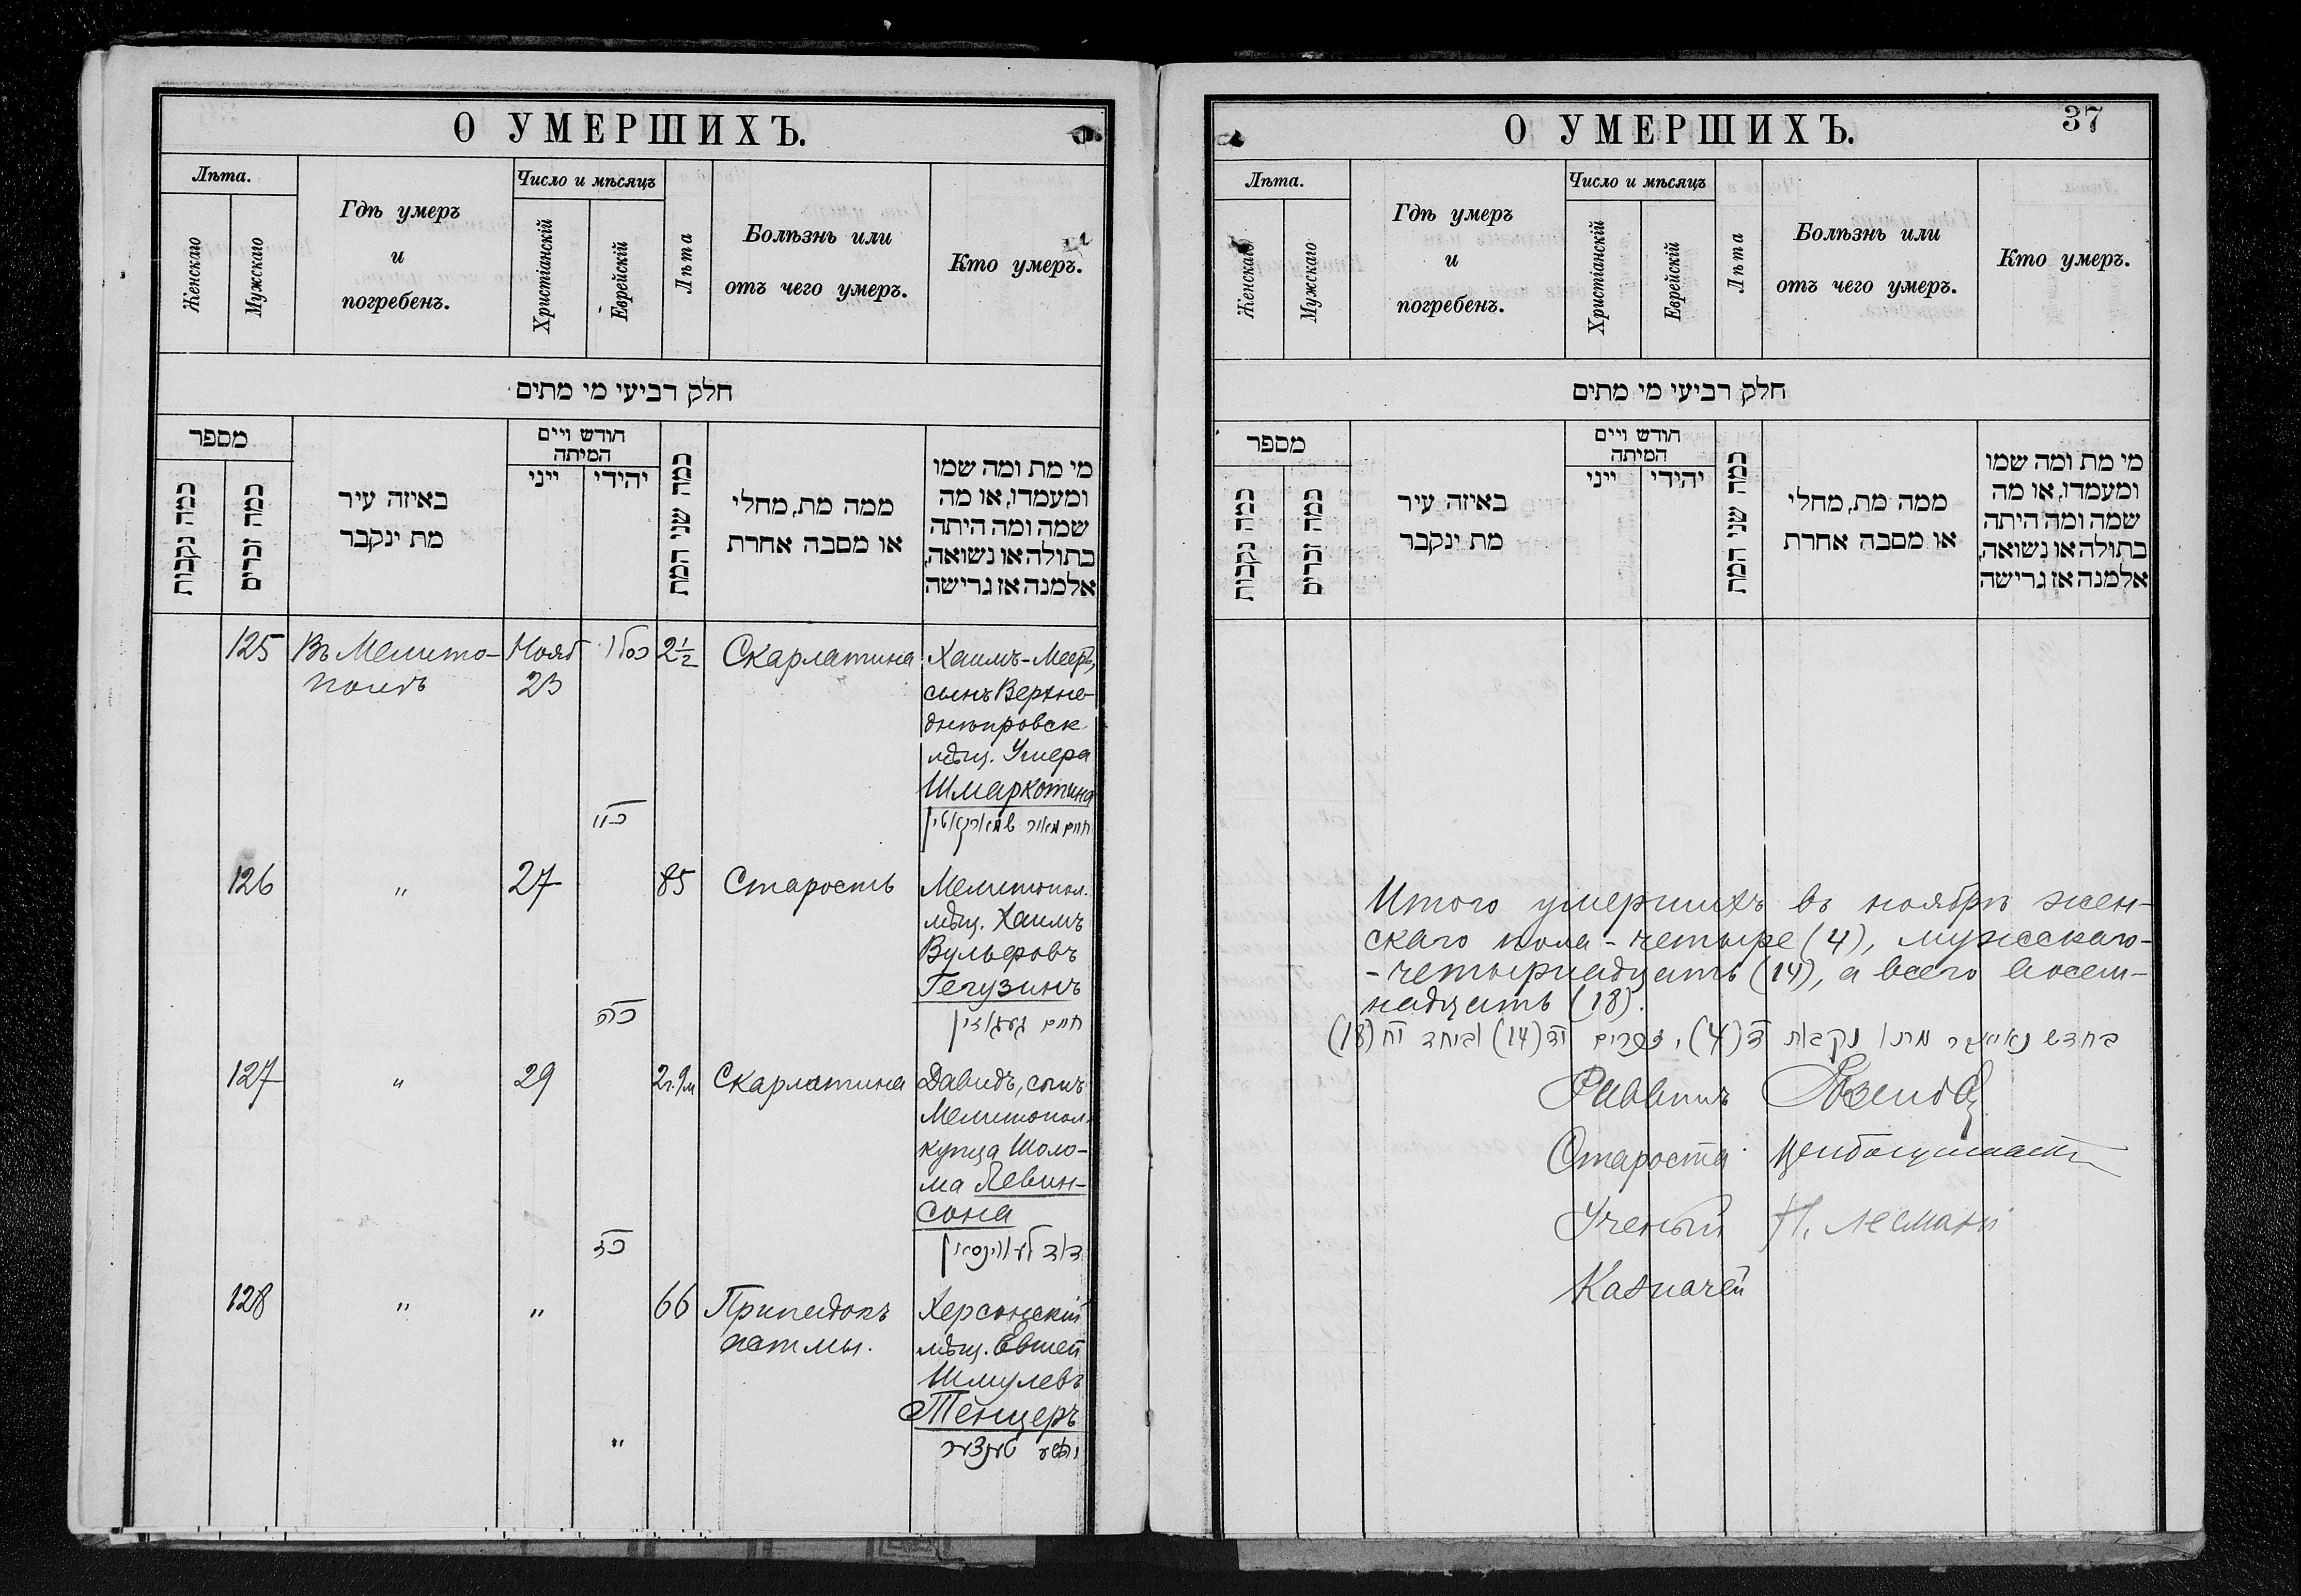 О УМЕРШИХЪ.
Лѣта.
Женскаго
Мужскаго
Гдѣ умеръ
и
погребенъ.
Число и мѣсяцъ
Христіанскій
Еврейскій
Лѣта
Болѣзнь или
отъ чего умеръ.
Кто умеръ.
חלק רביעי מי מתים
מספר
כמה נקבות
כמה זכרים
באיזה עיר
מת ינקבר
חודש ויים
המיתה
ייני
יהידי
כמה שני המת
ממה מת, מחלי
או מסבה אחרת
מי מת ומה שמו
ומעמדו, או מה
שמה ומה היתה
בתולה או נשואה,
אלמנה אז גרישה
125
Въ Мелито-
полѣ
Нояб
23
כסלו
כ״ו
2½
Скарлатина
Хаимъ-Мееръ,
сынъ Верхне-
днѣпровск
мѣщ. Умера
Шмаркотина
חיים מאיר שמארקאטין
126
"
27
כה
85
Старость
Мелитопол.
мѣщ. Хаимъ
Вульфовъ
Гегузинъ
חיים געגוזין
127
"
29
כד
2г. 9м
Скарлатина
Давидъ, сынъ
Мелитопол.
купца Шоло-
ма Левин-
сона
דוד לעווינסאן
128
"
"
"
66
Припадокъ
астмы.
Херсонскій
мѣщ. Евшей
Шмулевъ
Тенцеръ
טענצער
О УМЕРШИХЪ.
37
Лѣта.
Женскаго
Мужскаго
Гдѣ умеръ
и
погребенъ.
Число и мѣсяцъ
Христіанскій
Еврейскій
Лѣта
Болѣзнь или
отъ чего умеръ.
Кто умеръ.
חלק רביעי מי מתים
מספר
כמה נקבות
כמה זכרים
באיזה עיר
מת ינקבר
חודש ויים
המיתה
ייני
יהידי
כמה שני המת
ממה מת, מחלי
או מסבה אחרת
מי מת ומה שמו
ומעמדו, או מה
שמה ומה היתה
בתולה או נשואה,
אלמנה אז גרישה
Итого умершихъ въ ноябрѣ жен-
скаго пола - четыре (4), мужескаго -
- четырнадцать (14), а всего восем-
надцать (18).
בחדש נאיאבר מתו נקבות ד (4), זכרים יד (14) וביחד יח (18)
Раввинъ
Староста
Ученый Н. Лесманъ
Казначей